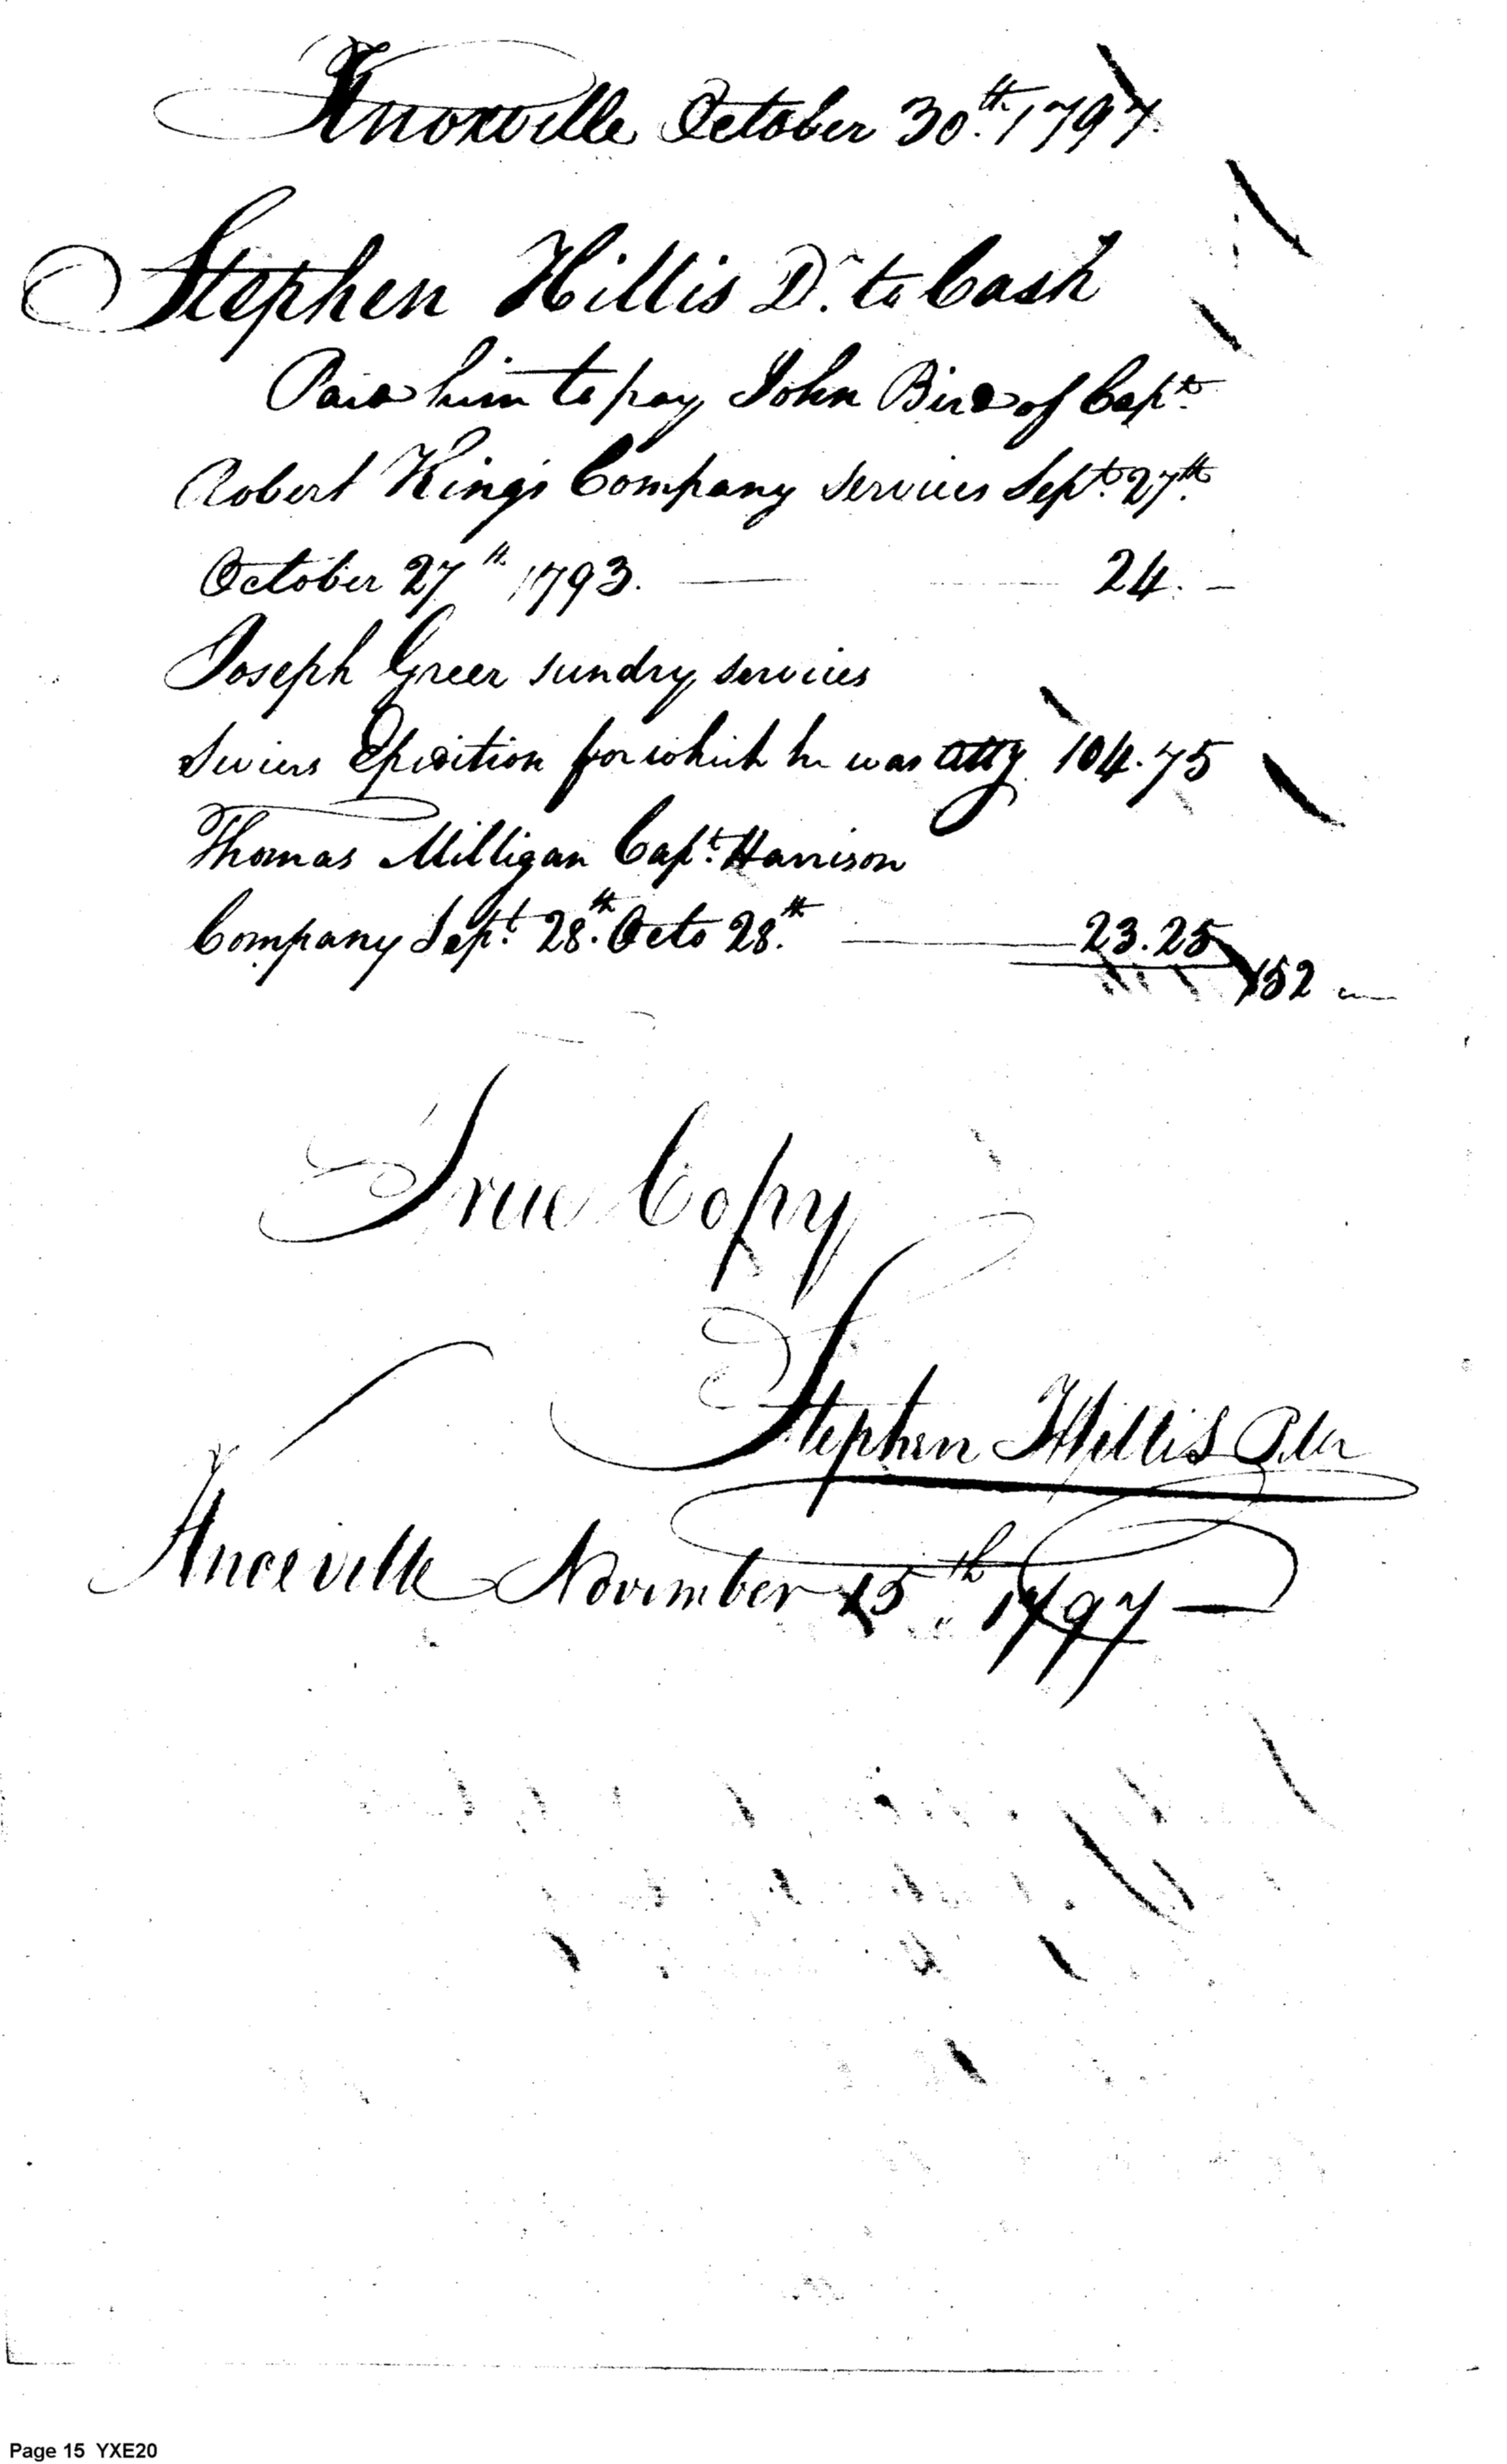 Knoxville October 30th. 1797.
Stephen Hillis Dr. to Cash
Paid him to pay John Bird of Capt.
Robert King's Company services Sept. 27th.
October 27th 1793. — 24. –
Joseph Greer sundry services
Seviers Expidition for which he was atty 104.75
Thomas Milligan Capt. Harrison
Company Sept. 28th. Octo 28th. — 23.25
152 —
True Copy
Stephen Hillis
Knoxville November 15th 1797 —
Page 15 YXE20